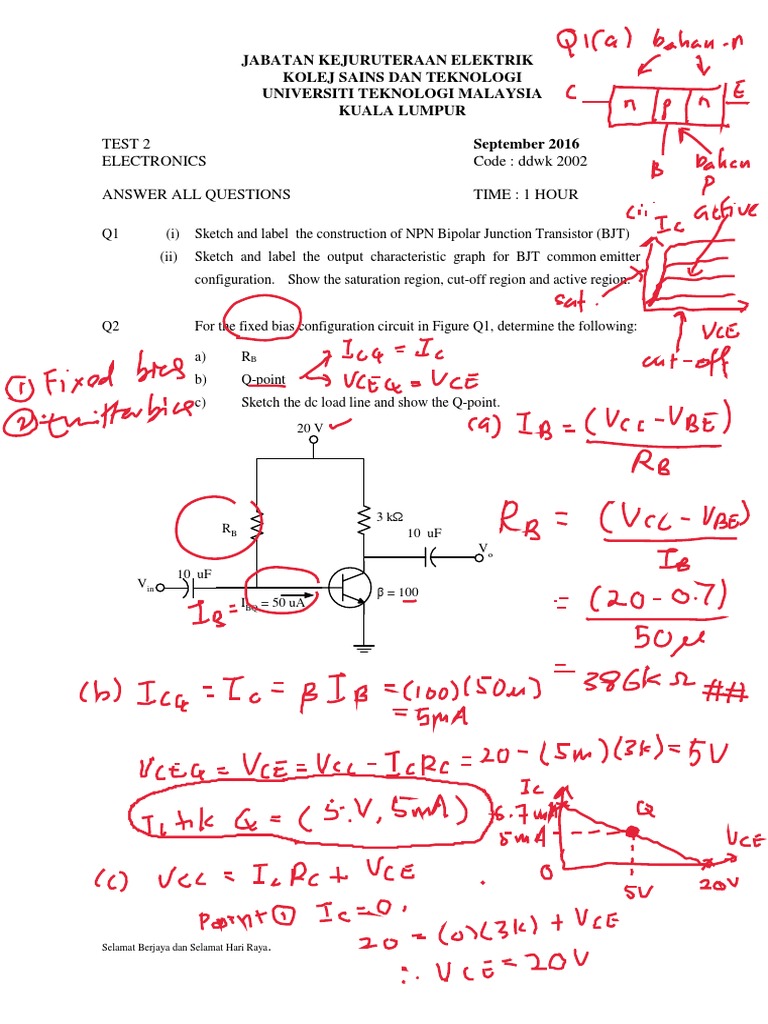 JABATAN KEJURUTERAAN ELEKTRIK
KOLEJ SAINS DAN TEKNOLOGI
UNIVERSITI TEKNOLOGI MALAYSIA
KUALA LUMPUR
Q1(a) bahan-n
C n p n E
B bahan p
TEST 2 September 2016
ELECTRONICS Code : ddwk 2002
ANSWER ALL QUESTIONS TIME : 1 HOUR
Q1 (i) Sketch and label the construction of NPN Bipolar Junction Transistor (BJT)
(ii) Sketch and label the output characteristic graph for BJT common emitter
configuration. Show the saturation region, cut-off region and active region.
cii Ic active
sat.
VCE
cut-off
Q2 For the fixed bias configuration circuit in Figure Q1, determine the following:
a) RB
b) Q-point
c) Sketch the dc load line and show the Q-point.
ICQ = IC
VCEQ = VCE
① Fixed bias
②
20 V
RB
3 kΩ
10 uF
Vo
10 uF
Vin
IBQ = 50 uA
β = 100
IB =
(a) IB = (VCC - VBE)
RB
RB = (VCC - VBE)
IB
= (20 - 0.7)
50μ
= 386k Ω ##
(b) ICQ = IC = β IB = (100)(50μ)
= 5mA
VCEQ = VCE = VCC - ICRC = 20 - (5m)(3k) = 5V
Q = (5.V, 5mA)
Ic
6.7 mA
5mA
0
Q
5V
20V
VCE
(c) VCC = ICRC + VCE
Point ① IC = 0,
20 = (0)(3k) + VCE
∴ VCE = 20V
Selamat Berjaya dan Selamat Hari Raya.